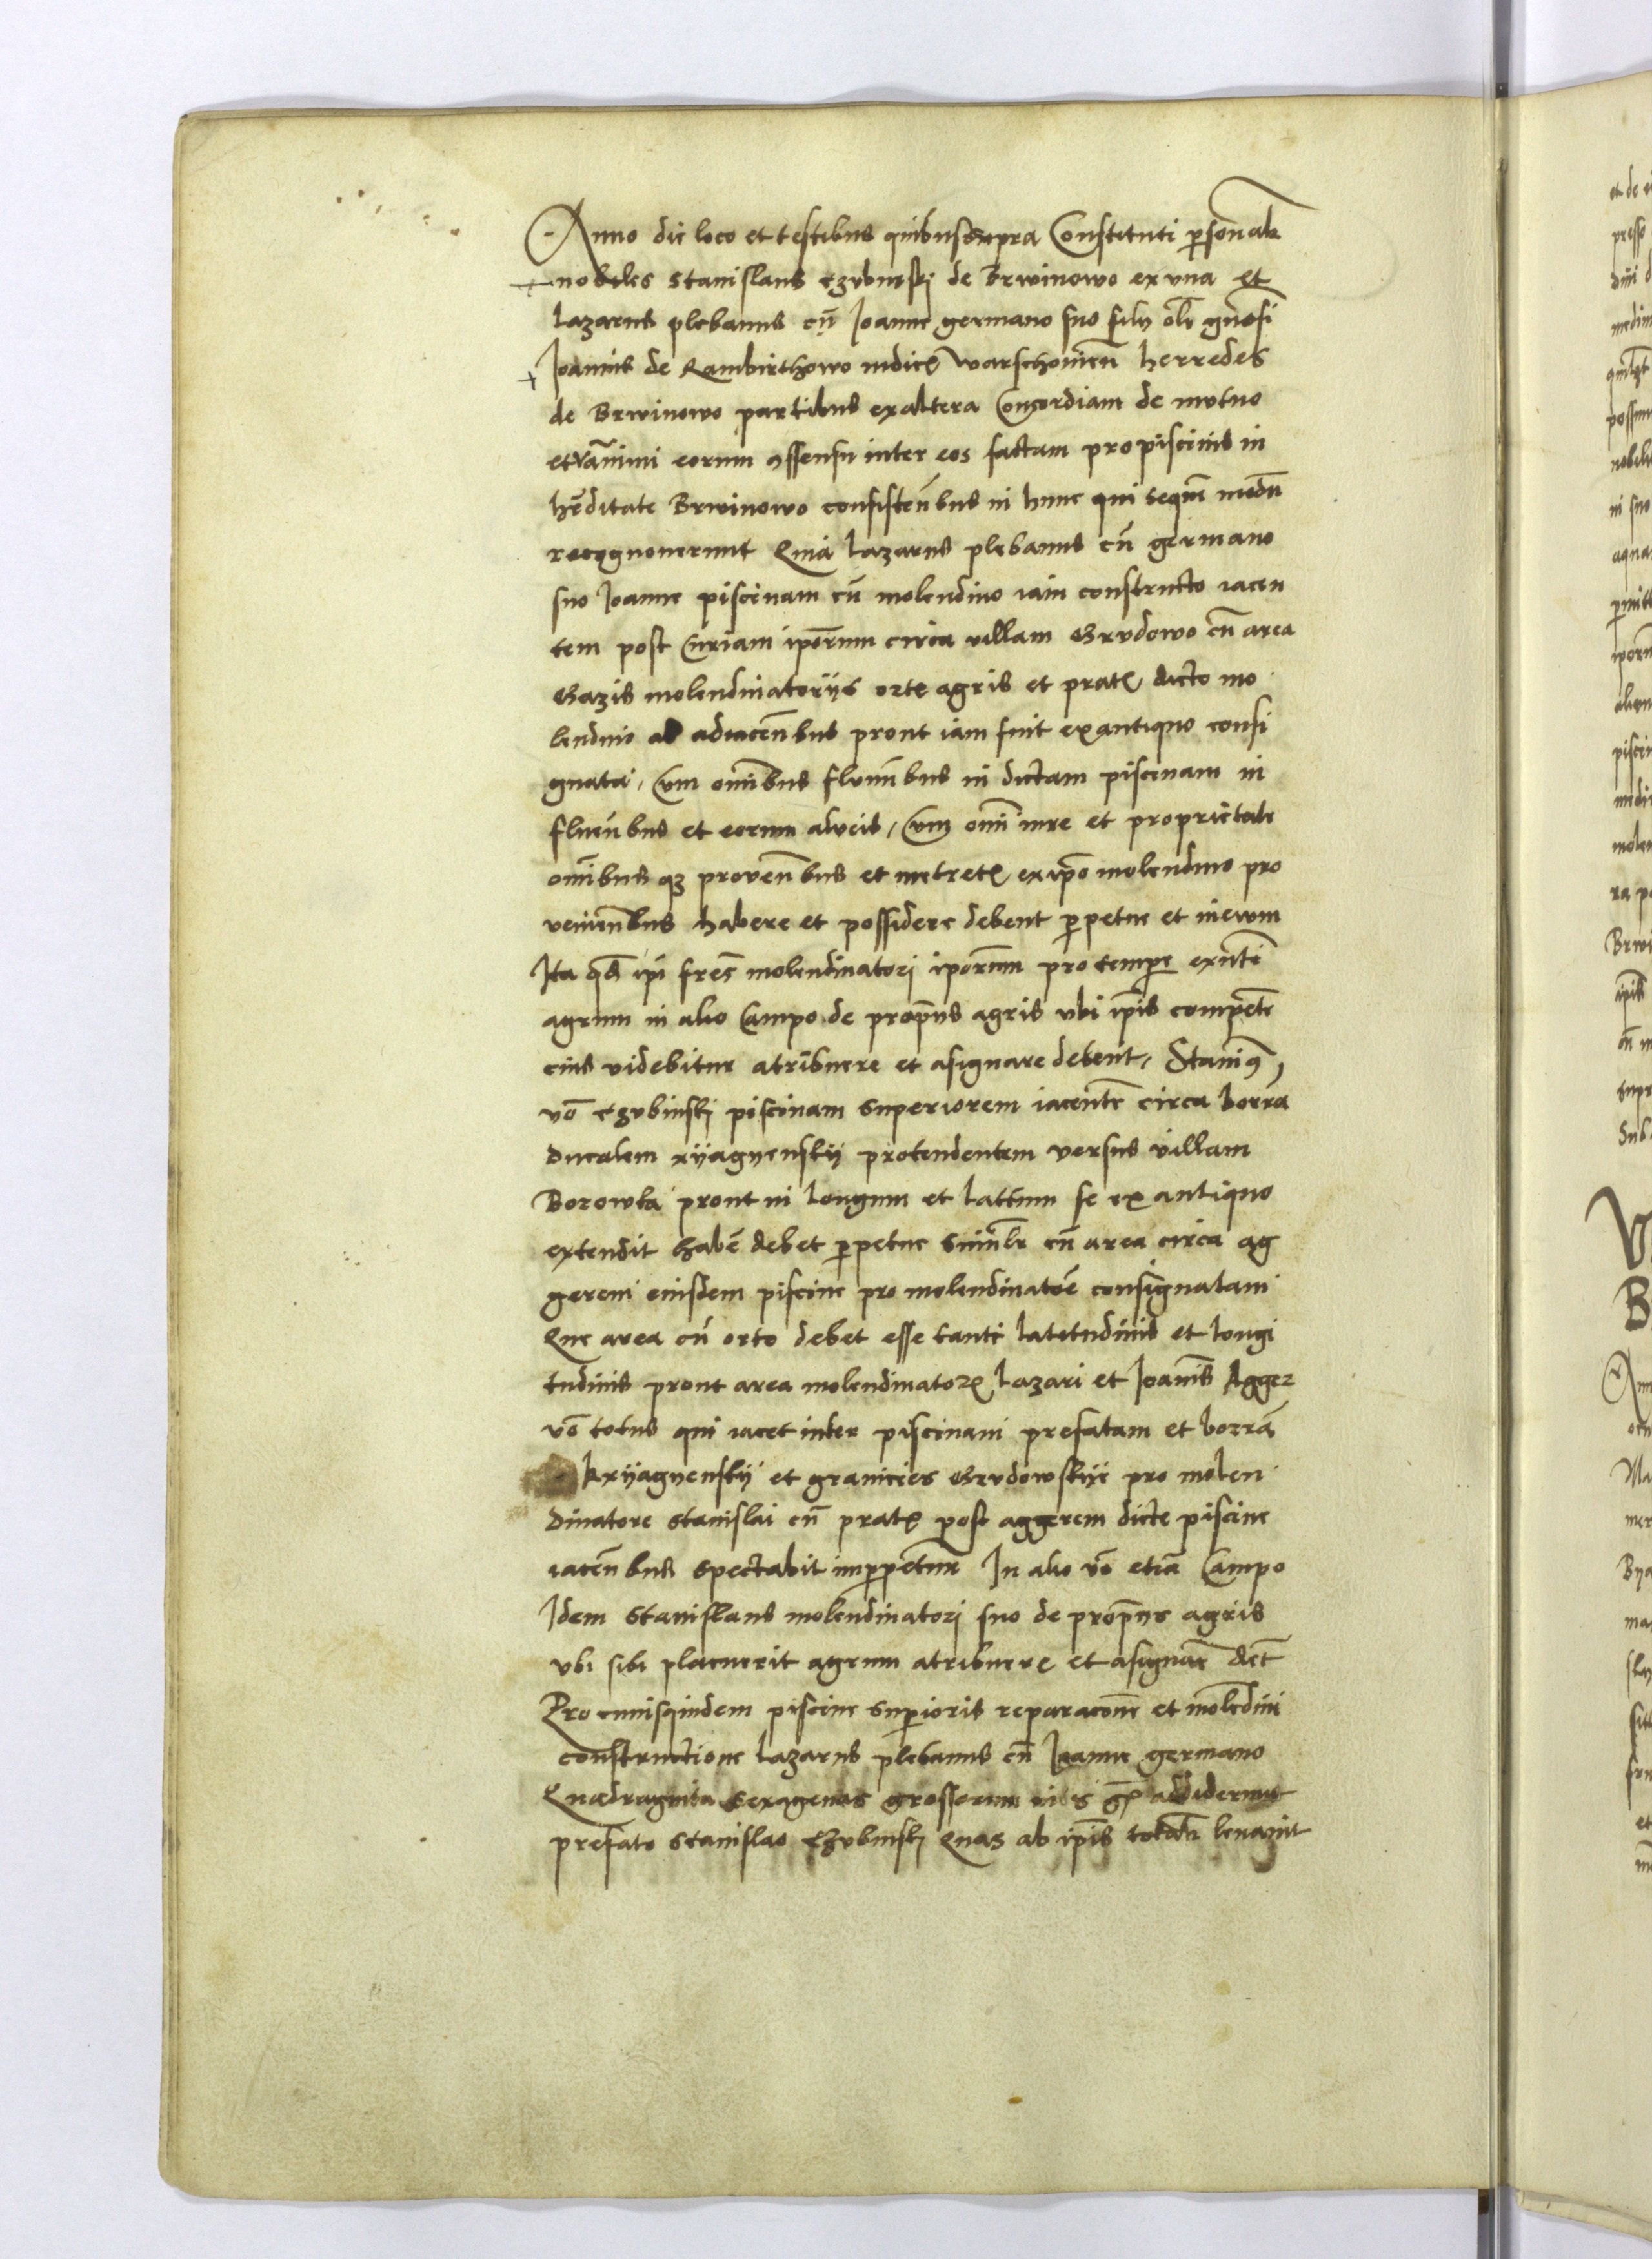 Anno die loco et testibus quibus supra Constituti p̱sonalr
nobiles Stanislaus Czubinski de Brwinowo ex vna et
Lazarus plebanus cū Joanne germano suo filij olī gn̄osi
Joannis de Rambirthowo iudicꝭ Warschouien̄ herredes
de Brwinowo partibus ex altera Concordiam de mutuo
et vnāimi eorum ꝯssensu inter eos factam pro piscinis in
hr̄editate Brwinowo consisten̄bus in hunc qui sequit̄ modū
recognouerunt Quia Lazarus plebanus cū germano
suo Joanne piscinam cū molendino iam constructo iacen
tem post Curiam ip̄orum circa villam Grudowo cū area
Gazis molendinatorijs orto agris et pratꝭ dicto mo
lendino adiacen̄bus prout iam fuit ex antiquo consi
gnata, Cum om̄ibus flumī̄bus in dictam piscinam in
fluen̄bus et eorum alueis, Cum om̄i iure et proprietate
om̄ibusqȝ prouen̄bus et metretꝭ ex ip̄o molendino pro
venien̄bus habere et possidere debent p̱petue et in ewm
Ita qd̄ ip̄i fr̄es molendinatori ip̄orum pro tempe exn̄ti
agrum in alio Campo de prop̄ijs agris vbi ip̄is compete
cius videbitur atribuere et asignare debent, Stanisꝰ
vō Czubinski piscinam superiorem iacentē circa borra
ducalem xyagyenskij protendentem versus villam
Borowka prout in longum et lattum se ex antiquo
extendit habē debet p̱petue similr cū area circa ag
gerem eiusdem piscine pro molendinatoē consignatam
Que area cū orto debet esse tanti latitudinis et longi
tudinis prout area molendinatorꝭ Lazari et Joannis Agger
vō totus qui iacet inter piscinam prefatam et borrā
kxyagyenskij et granicies Grudowskije pro molen
dinatore Stanislai cū pratꝭ post aggerem dicte piscine
iacen̄bus spectabit imp̱petuum In alio vō etiā Campo
Idem Stanislaus molendinatori suo de prop̄ijs agris
vbi sibi placuerit agrum atribuere et asignarē debt̄
Pro cuiusquidem piscine sup̱ioris reparacōne et molēdini
constructione Lazarus plebanus cū Joanne germano
Quadraginta sexagenas grossorum adiiderunt
prefato Stanislao Czubinski Quas ab ip̄is totalr leuauit